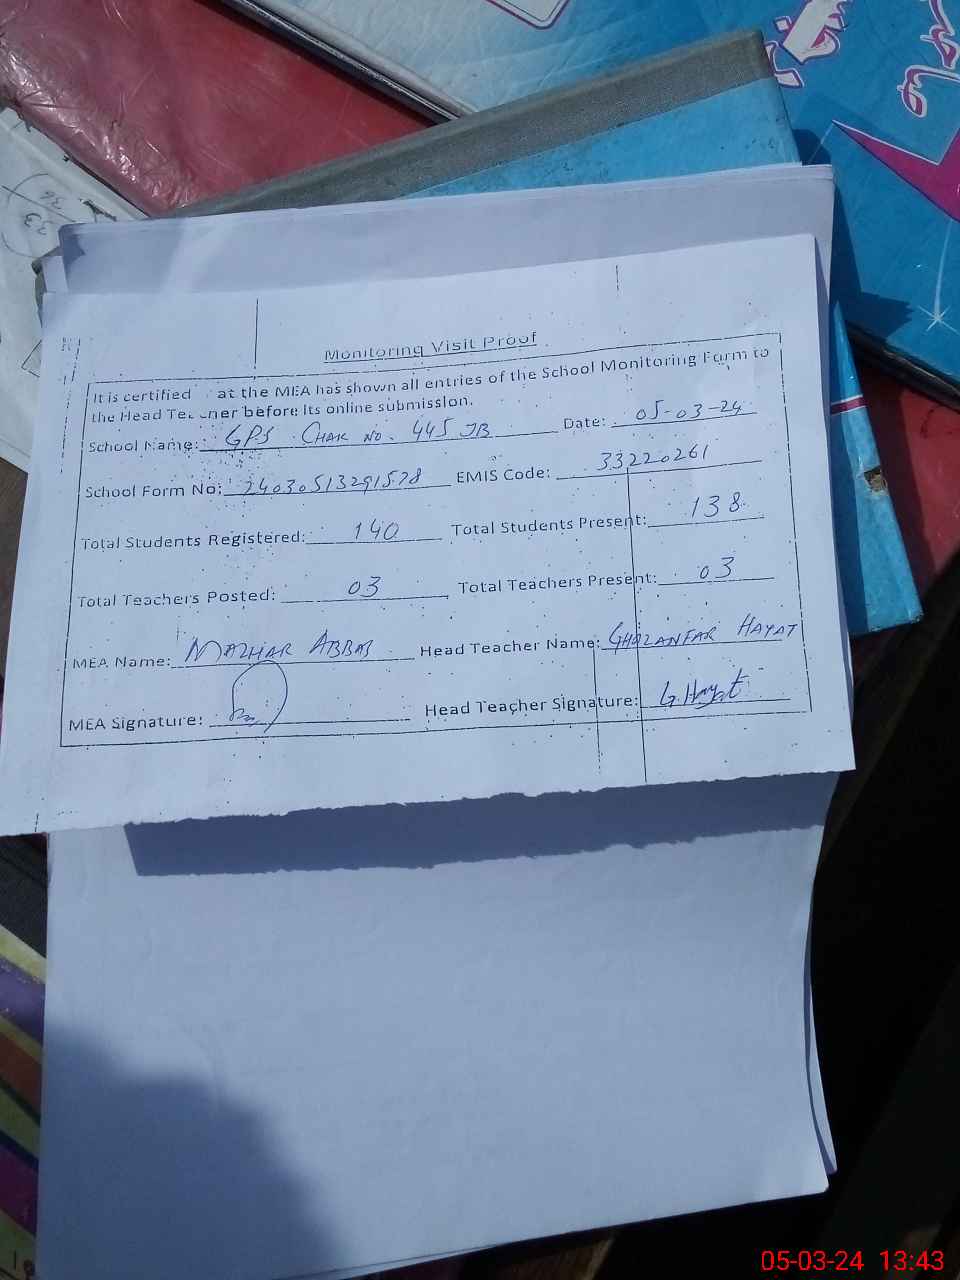 Monitoring Visit Proof
It is certified at the MEA has shown all entries of the School Monitoring Form to
the Head Teacher before its online submission.
School Name: GPS CHAK NO. 445 JB Date: 05-03-24
School Form No: EMIS Code: 33220261
Total Students Registered: 140 Total Students Present: 138
Total Teachers Posted: 03 Total Teachers Present: 03
MEA Name: MAZHAR ABBAS Head Teacher Name: GHAZANFAR HAYAT
MEA Signature: Head Teacher Signature: G. Hayat
33
36
05-03-24 13:43